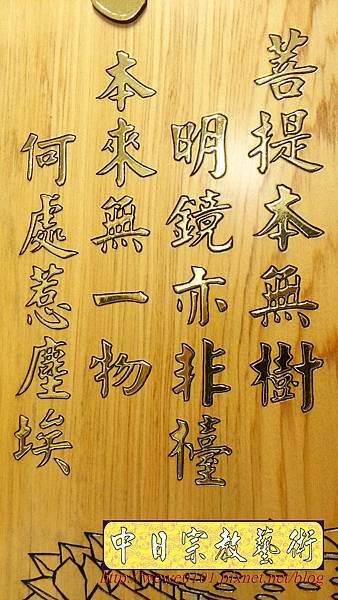 菩提本無樹
明鏡亦非檯
本來無一物
何處惹塵埃
中日宗教藝術